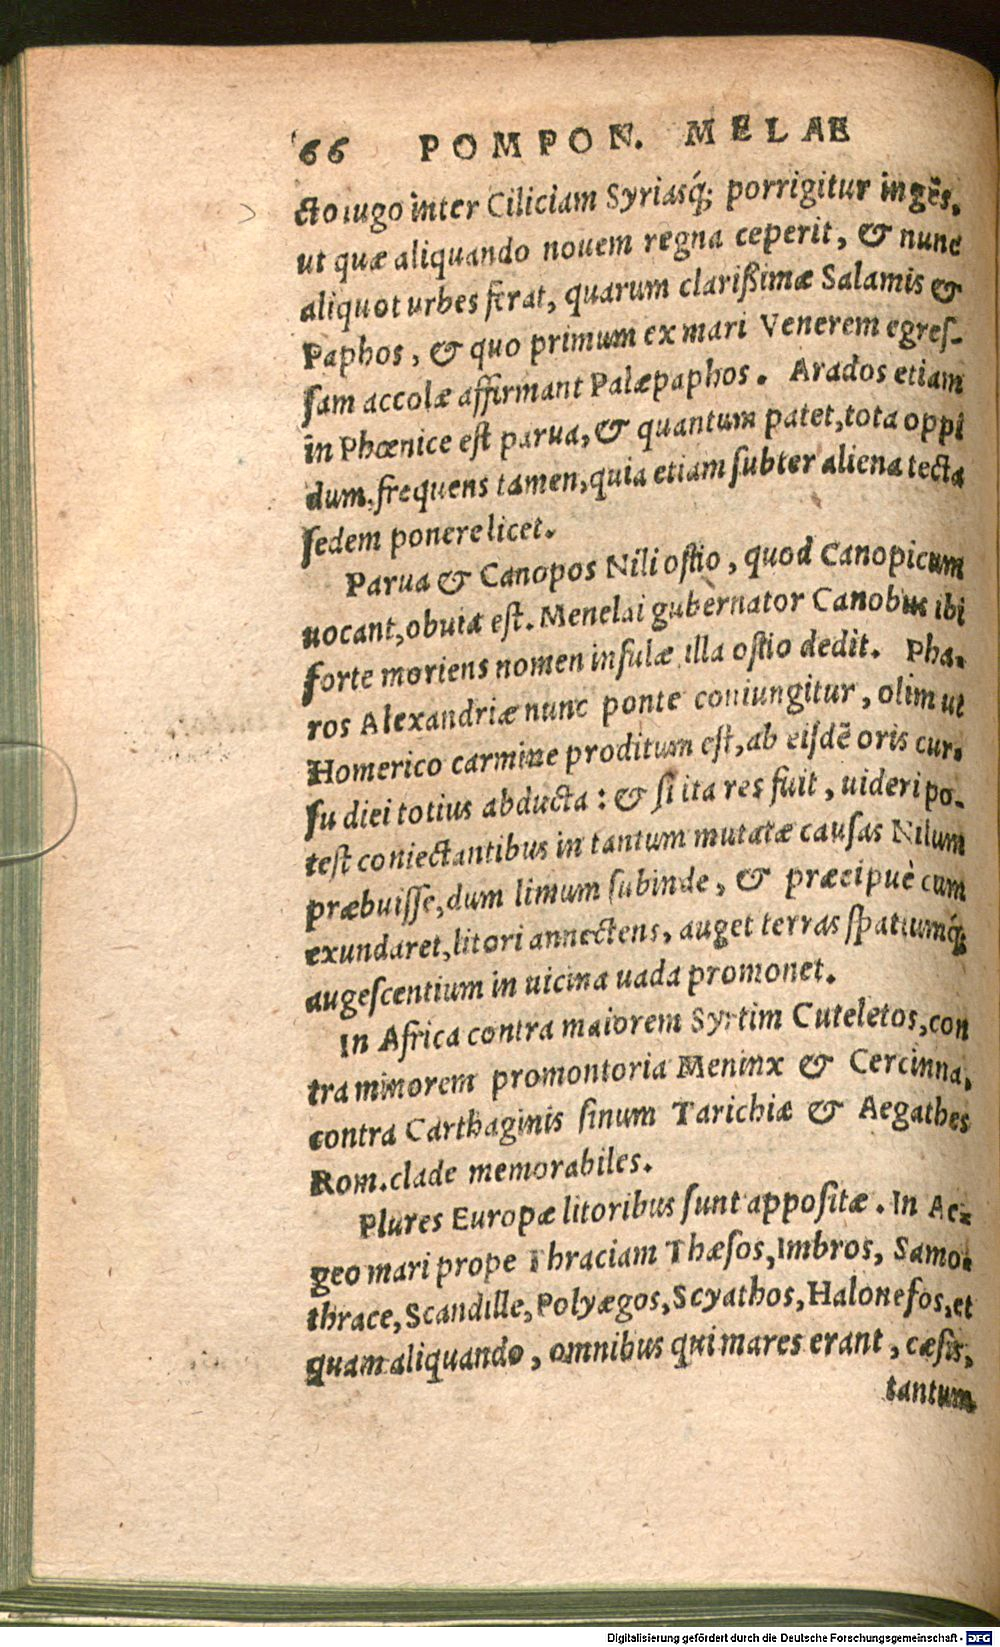 66 POMPON. MELAE
cto iugo inter Ciliciam Syriasq́; porrigitur ingẽs,
ut quæ aliquando nouem regna ceperit, & nunc
aliquot urbes ferat, quarum clarißimæ Salamis &
Paphos, & quo primum ex mari Venerem egreſ-
ſam accolæ affirmant Palæpaphos. Arados etiam
in Phœnice eſt parua, & quantum patet, tota oppi
dum, frequens tamen, quia etiam ſubter aliena tecta
ſedem ponere licet.
Parua & Canopos Nili oſtio, quod Canopicum
uocant, obuia eſt. Menelai gubernator Canobus ibi
forte moriens nomen inſulæ, illa oſtio dedit. Pha-
ros Alexandriæ nunc ponte coniungitur, olim ut
Homerico carmine proditum eſt, ab eiſdẽ oris cur-
ſu diei totius abducta: & ſi ita res fuit, uideri po-
teſt coniectantibus in tantum mutatæ cauſas Nilum
præbuiſſe, dum limum ſubinde, & præcipuè cum
exundaret, litori annectens, auget terras ſpatiumq́;
augeſcentium in uicina uada promonet.
In Africa contra maiorem Syrtim Cuteletos, con
tra minorem promontoria Meninx & Cercinna,
contra Carthaginis ſinum Tarichiæ & Aegathes
Rom. clade memorabiles.
Plures Europæ litoribus ſunt appoſitæ. In Ae-
geo mari prope Thraciam Thæſos, Imbros, Samo-
thrace, Scandille, Polyægos, Scyathos, Haloneſos, et
quam aliquando, omnibus qui mares erant, cæſis,
tantum
Digitalisierung gefördert durch die Deutsche Forschungsgemeinschaft - DFG